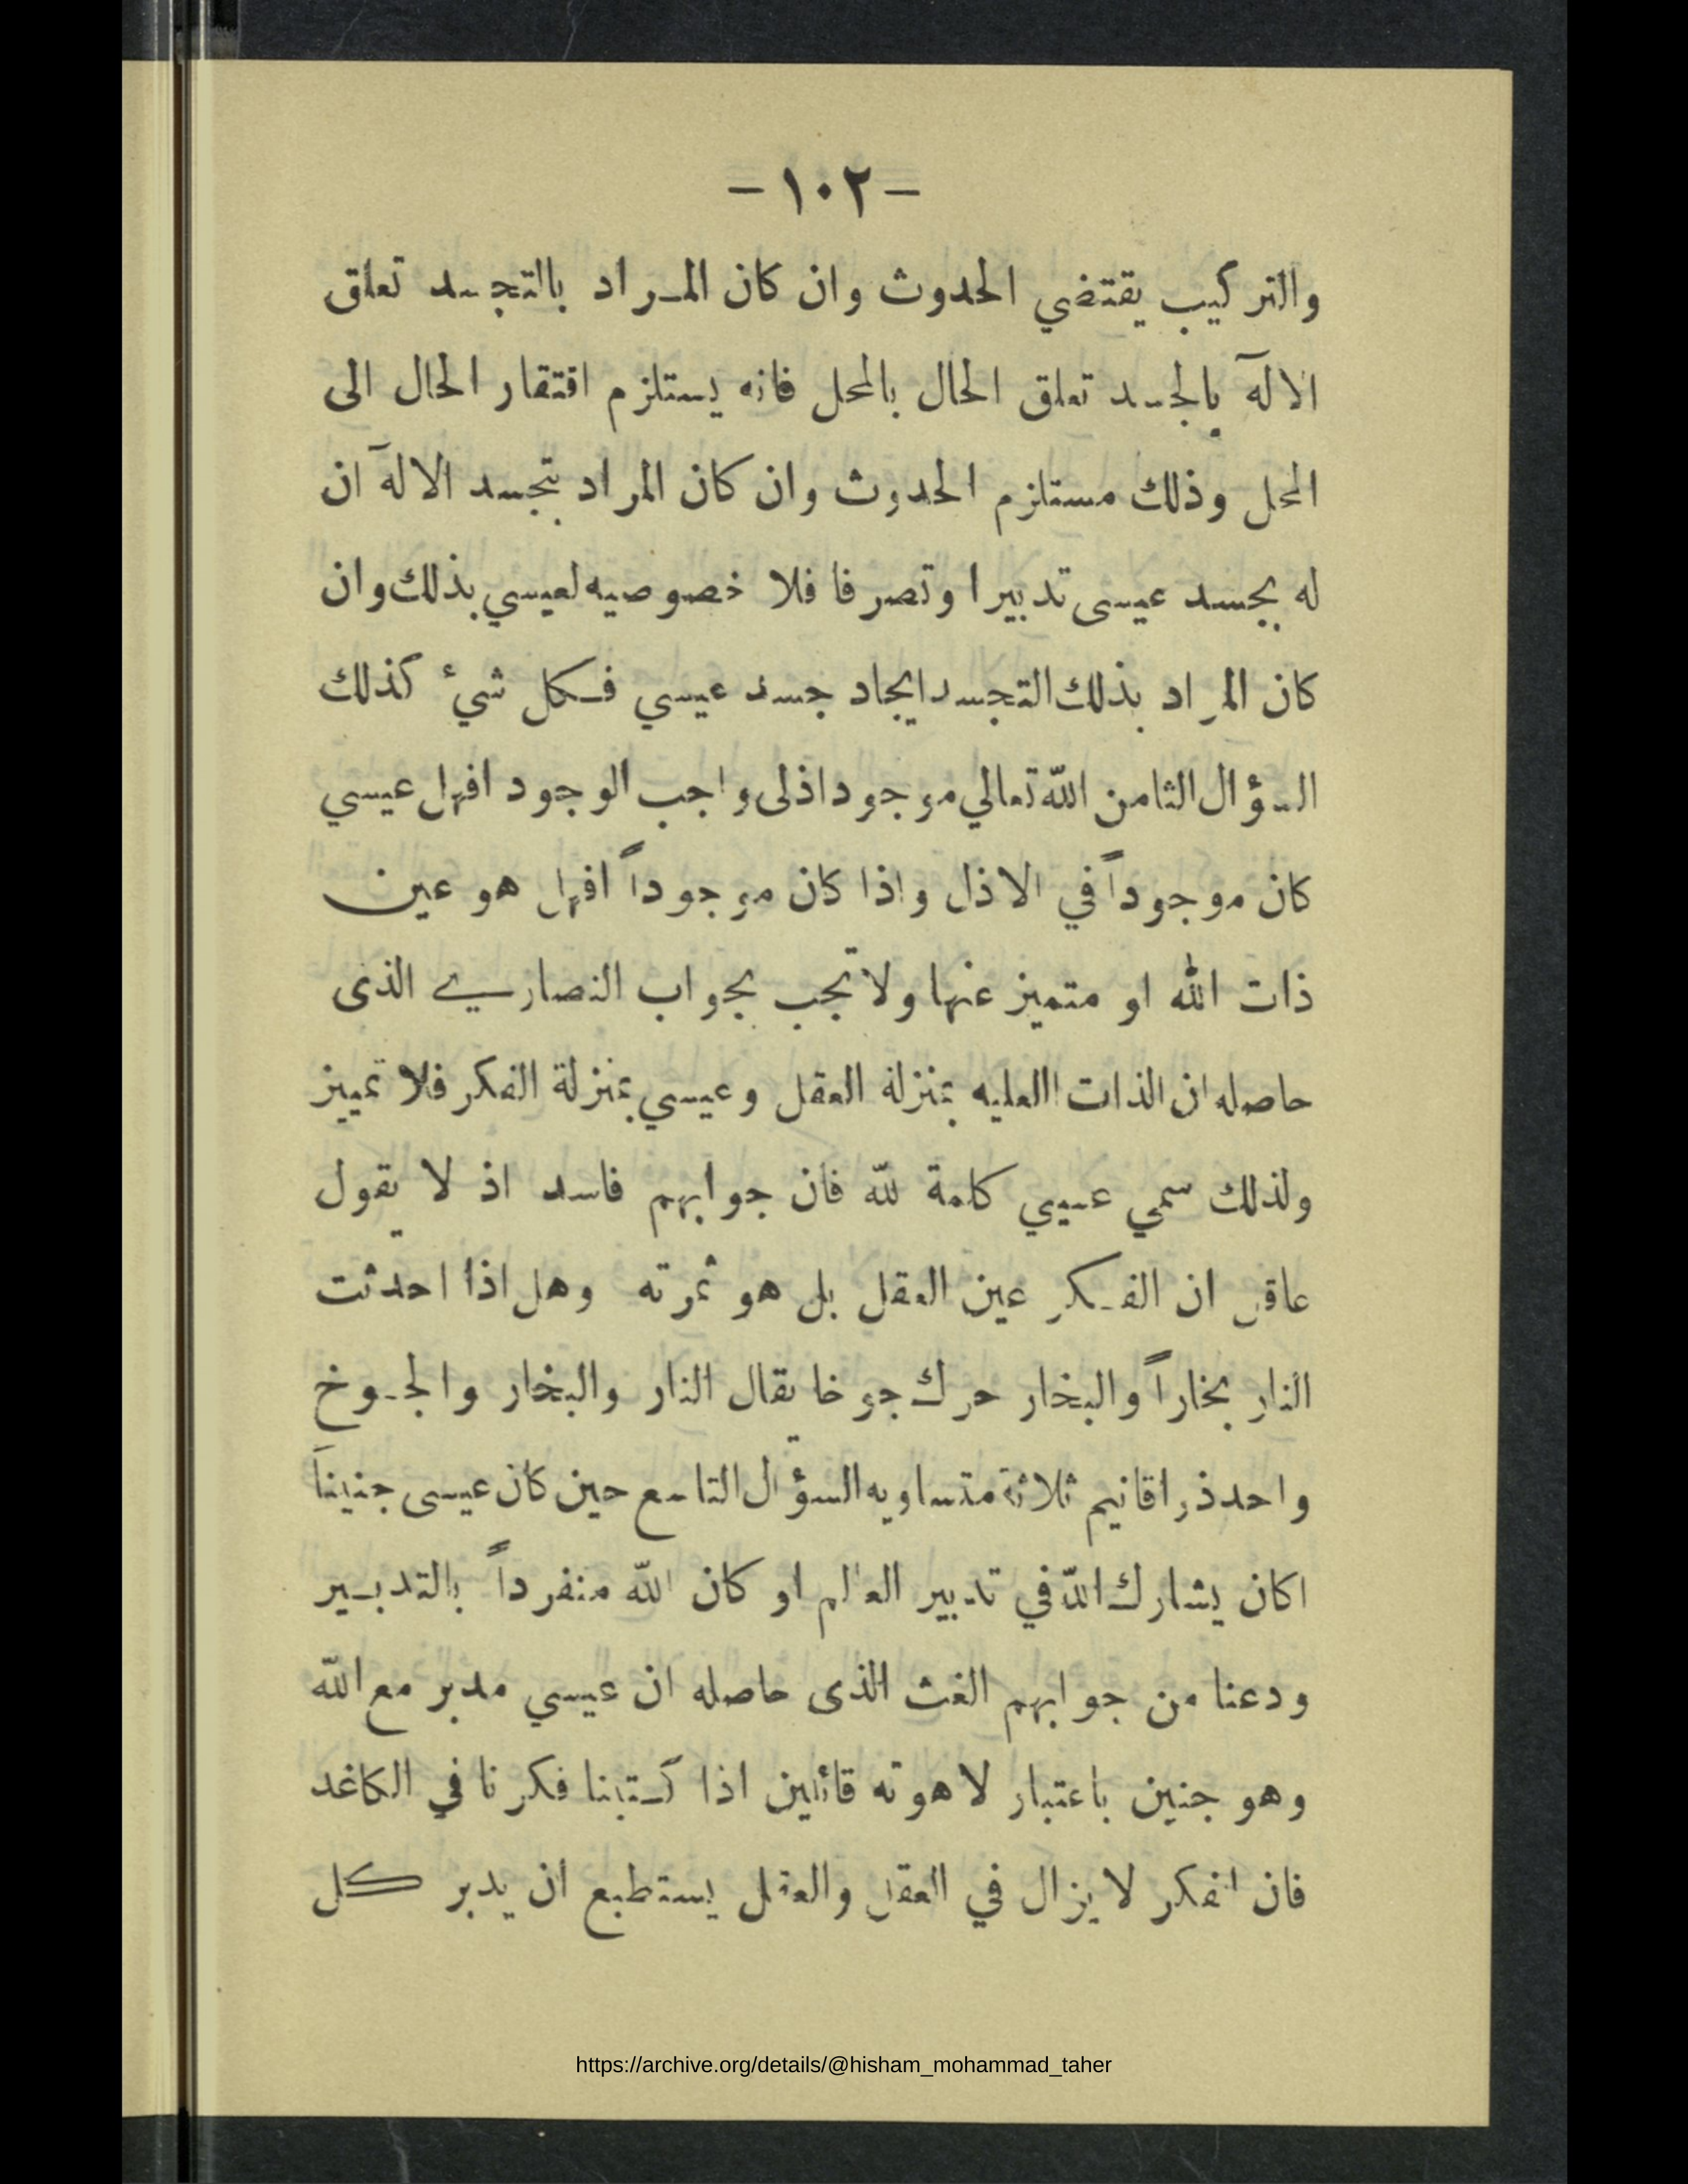 -١٠٢-
والتركيب يقتضي الحدوث وان كان المراد بالتجسد تعلق
الالٓه بالجسد تعلق الحال بالمحل فانه يستلزم افتقار الحال الى
المحل وذلك مستلزم الحدوث وان كان المراد بتجسد الالٓه ان
له بجسد عيسى تدبيرا وتصرفا فلا خصوصيه لعيسي بذلك وان
كان المراد بذلك التجسد ايجاد جسد عيسي فكل شيء كذلك
السؤال الثامن الله تعالي موجود اذلى واجب الوجود افهل عيسي
كان موجوداً في الاذل واذا كان موجوداً افهل هو عين
ذات الله او متميز عنها ولا تجب بجواب النصارے الذى
حاصله ان الذات االعليه بمنزلة العقل وعيسي بمنزلة الفكر فلا تمييز
ولذلك سمي عيسي كلمة لله فان جوابهم فاسد اذ لا يقول
عاقل ان الفكر عين العقل بل هو ثمرته وهل اذا احدثت
النار بخاراً والبخار حرك جوخا يقال النار والبخار والجوخ
واحد ذر اقانيم ثلاثة متساويه السؤال التاسع حين كان عيسى جنيناً
اكان يشارك الله في تدبير العالم او كان الله منفرداً بالتدبير
ودعنا من جوابهم الغث الذى حاصله ان عيسي مدبر مع الله
وهو جنين باعتبار لاهوته قائلين اذا كتبنا فكرنا في الكاغد
فان الفكر لا يزال في العقل والعقل يستطيع ان يدبر كل
https://archive.org/details/@hisham_mohammad_taher